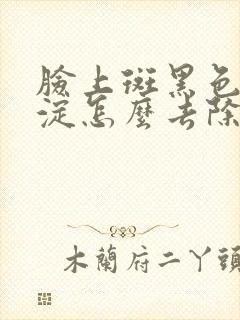 臉上斑黑色
淀怎麼去除
木蘭府二丫頭